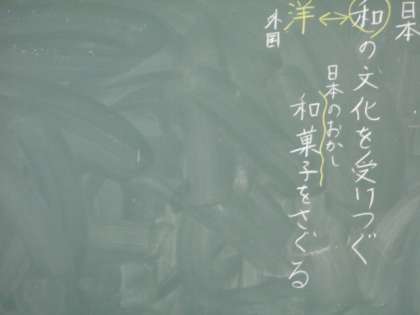 日本
和の文化を受けつぐ
↔
洋
外国
日本のおかし
和菓子をさぐる